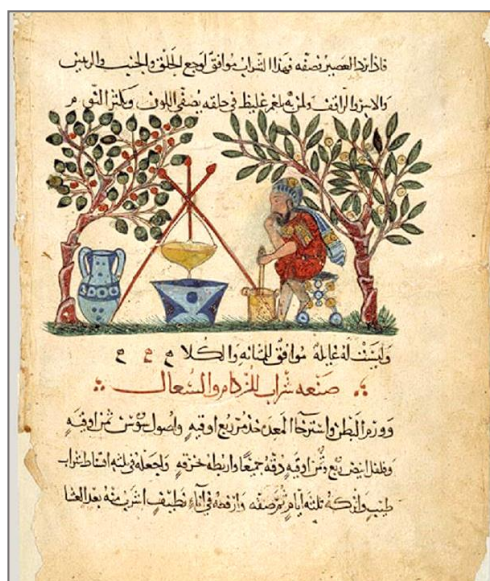 فاذا برد العصير نصفه فهذا الشراب موافق لوجع الحلق والجنب
ولمن به بلغم غليظ في حلقه يصفي اللون ويكثر النوم
وليست له غايلة موافق للمثانه والكلا
صنعه شراب للزكام والسعال
وورم البطن واسترخا المعده خذ مر ربع اوقيه واصول سوس ثمن اوقيه
وفلفل ابيض ربع وثمن اوقيه دقه جميعا واربطه خرقه واجعله في ثلثه اقساط شراب
طيب واتركه ثلثه ايام ثم صفه وارفعه في اناء نظيف اشرب منه بعد العشا